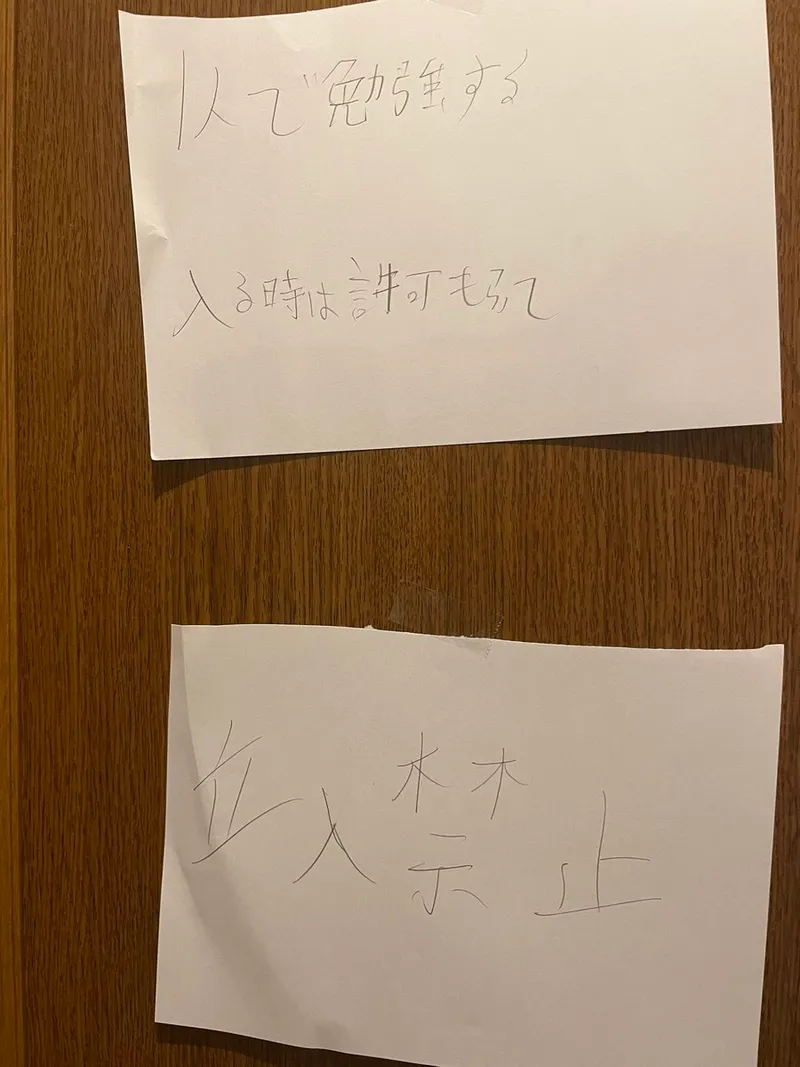 1人で勉強する
入る時は許可もらって
立入禁止